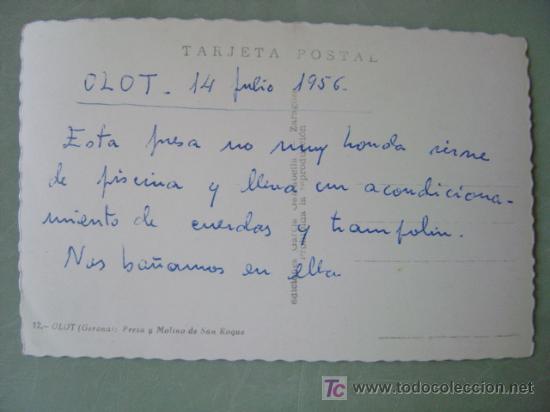 TARJETA POSTAL
OLOT. 14 Julio 1956.
Esta presa no muy honda sirve
de piscina y lleva un acondiciona-
miento de cuerdas y trampolin.
Nos bañamos en ella
ediciones García Garrabella Zaragoza
Prohibida la reproducción
12,- OLOT (Gerona): Presa y Molino de San Roque
TC www.todocoleccion.net